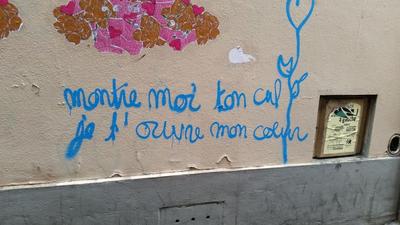 montre moi ton cul
je t'ouvre mon coeur